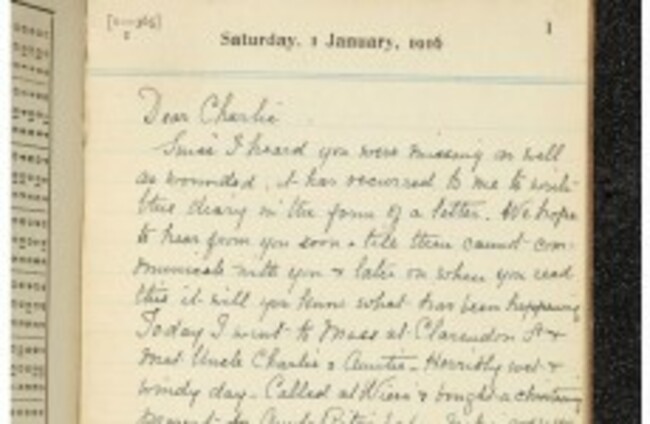 1
Saturday, 1 January, 1916
Dear Charlie
Since I heard you were missing as well
as wounded, it has occurred to me to write
this diary in the form of a letter. We hope
to hear from you soon & till then cannot com-
municate with you & later on when you read
this it will you know what has been happening
Today I went to Mass at Clarendon St &
met Uncle Charlie & Auntie - Horribly wet &
windy day - Called at & bought a christening
present